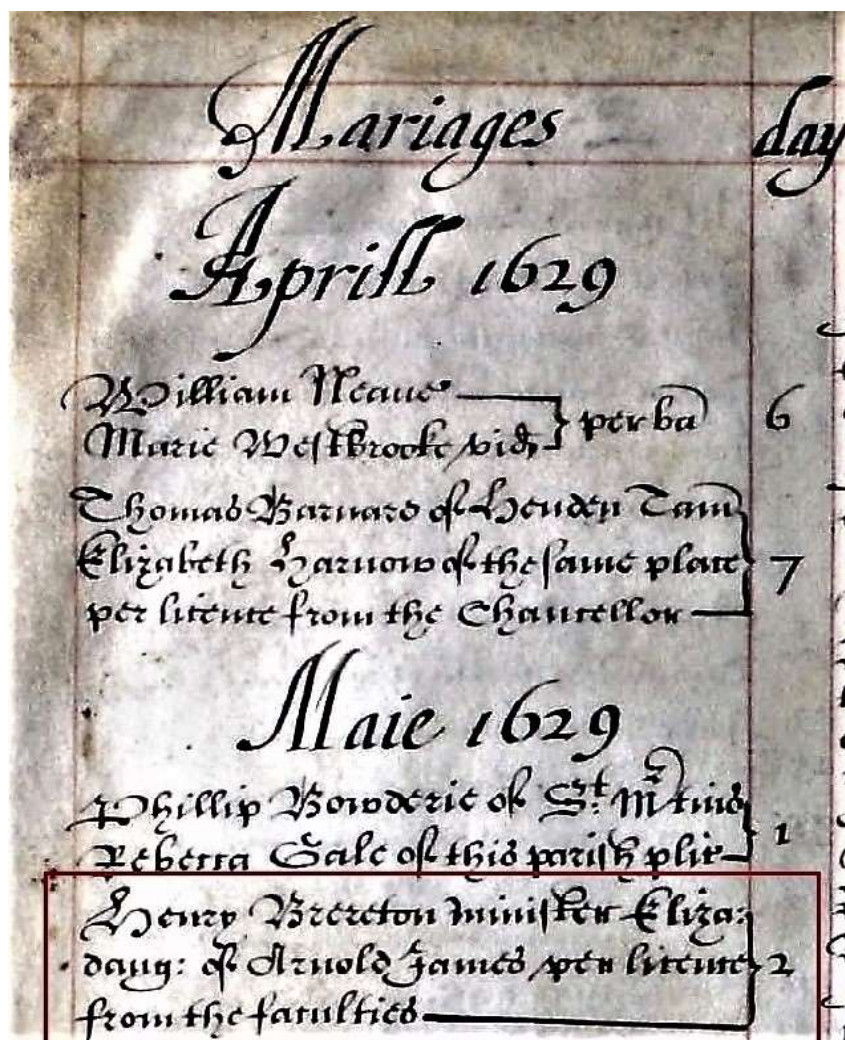 Mariages day
Aprill 1629
William Neave
Marie Westbrooke vid per ba 6
Thomas Barnard of Henden Tam
Elizabeth Harnow of the same place 7
per licence from the Chancellor
Maie 1629
Phillip Bowderie of St. Mtins
Rebecca Gale of this parish p lic 1
Henry Brereton minister Eliza:
daug: of Arnold James per licence 2
from the faculties